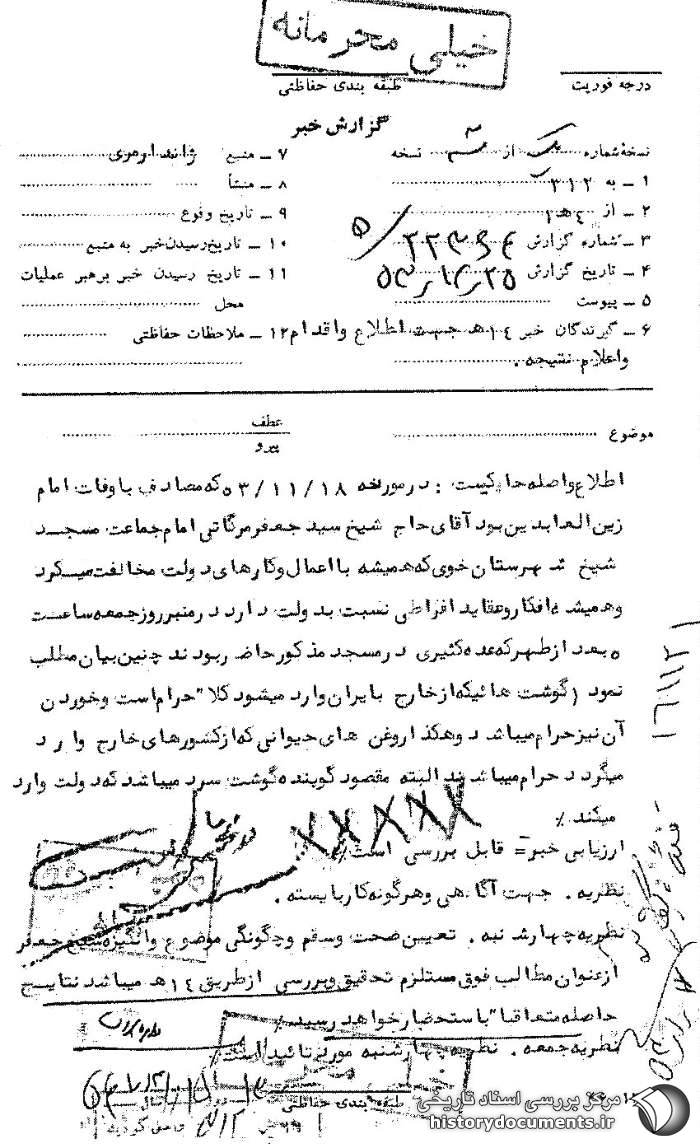 خیلی محرمانه
طبقه بندی حفاظتی
درجه فوریت
گزارش خبر
نسخهٔ شماره یک از سه نسخه
۱ – به ۳۱۲
۲ – از ۱ه۴
۳ – شماره گزارش
۴ – تاریخ گزارش
۵ – پیوست
۶ – گیرندگان خبر ۱۴ه جهت اطلاع و اقدام
واعلام نتیجه .
۷ – منبع ژاندارمری
۸ – منشأ
۹ – تاریخ وقوع
۱۰ – تاریخ رسیدن خبر به منبع
۱۱ – تاریخ رسیدن خبر برهبر عملیات
محل
۱۲ – ملاحظات حفاظتی
موضوع
عطف
پیرو
اطلاع واصله حاکیست : در مورخه ۵۳/۱۱/۱۸ که مصادف با وفات امام
زین العابدین بود آقای حاج شیخ سید جعفر مرگاتی امام جماعت مسجد
شیخ شهرستان خوی که همیشه با اعمال وکارهای دولت مخالفت میکرد
وهمیشه افکار وعقاید افراطی نسبت بدولت دارد در منبر روز جمعه ساعت
۵ بعد از ظهر که عده کثیری در مسجد مذکور حاضر بودند چنین بیان مطلب
نمود ( گوشت هائیکه از خارج بایران وارد میشود کلا" حرام است وخوردن
آن نیز حرام میباشد وهکذا روغن های حیوانی که از کشورهای خارج وارد
میگردد حرام میباشند البته مقصود گوینده گوشت سرد میباشد که دولت وارد
میکند ./
ارزیابی خبر= قابل بررسی است ./
نظریه . جهت آگاهی وهرگونه کار بایسته .
نظریه چهارشنبه . تعیین صحت وسقم وچگونگی موضوع وانگیزه شیخ جعفر
از عنوان مطالب فوق مستلزم تحقیق وبررسی از طریق ۱۴ه میباشد نتایج
حاصله متعاقبا" باستحضار خواهد رسید ./
نظریه جمعه . نظریه چهارشنبه مورد تائید است ./
طبقه بندی حفاظتی
۱۶۱۱۲۱
مرکز بررسی اسناد تاریخی
historydocuments.ir